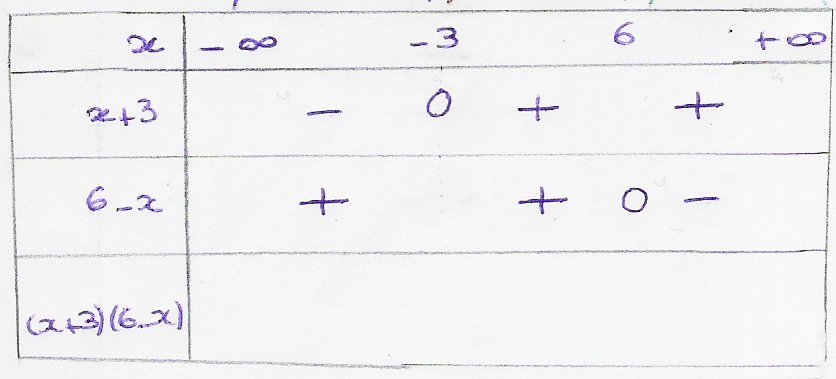 x -∞ -3 6 +∞
x+3 - 0 + +
6-x + + 0 -
(x+3)(6-x)